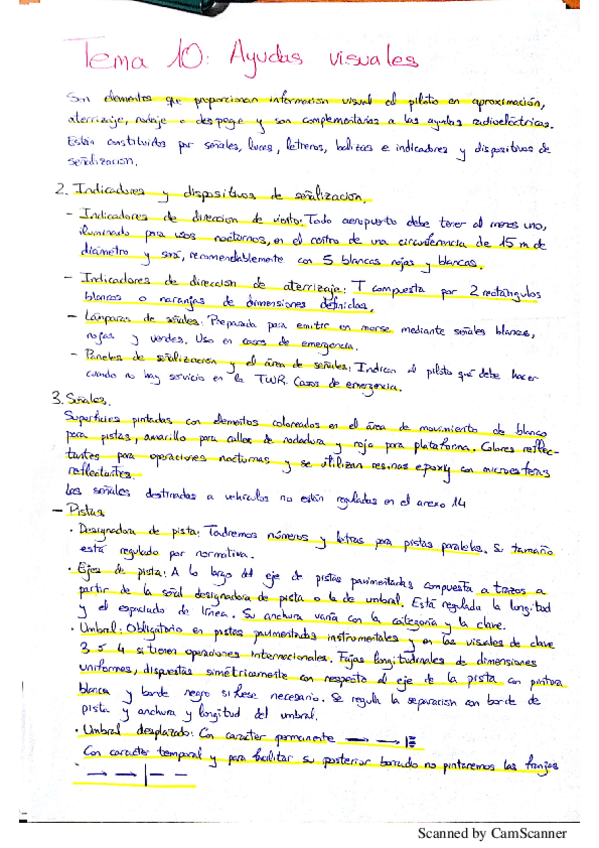 Tema 10: Ayudas visuales
Son elementos que proporcionan informacion visual al piloto en aproximación,
aterrizaje, rodaje o despege y son complementarias a las ayudas radioeléctricas.
Están constituidas por señales, luces, letreros, balizas e indicadores y dispositivos de
señalización.
2. Indicadores y dispositivos de señalización.
- Indicadores de direccion de viento: Todo aeropuerto debe tener al menos uno,
iluminado para usos nocturnos, en el centro de una circunferencia de 15 m de
diámetro y será, recomendablemente con 5 blancas rojas y blancas.
- Indicadores de direccion de aterrizaje: T compuesta por 2 rectángulos
blancos o naranjas de dimensiones definidas.
- Lámparas de señales: Preparada para emitir en morse mediante señales blancas,
rojas y verdes. Uso en casos de emergencia.
- Paneles de señalización y el área de señales: Indican al piloto qué debe hacer
cuando no hay servicio en la TWR. Casos de emergencia.
3. Señales.
Superficies pintadas con elementos coloreados en el área de movimiento de blanco
para pistas, amarillo para calles de rodadura y rojo para plataforma. Colores reflec-
tantes para operaciones nocturnas y se utilizan resinas epoxy con microesferas
reflectantes.
Las señales destinadas a vehiculos no están reguladas en el anexo 14
- Pistas
· Designadora de pista: Tendremos números y letras para pistas paralelas. Su tamaño
está regulado por normativa.
· Ejes de pista: A lo largo del eje de pistas pavimentadas compuesta a trazos a
partir de la señal designadora de pista o la de umbral. Está regulada la longitud
y el espaciado de línea. Su anchura varía con la categoría y la clave.
· Umbral: Obligatorio en pistas pavimentadas instrumentales y en las visuales de clave
3 ó 4 si tienen operaciones internacionales. Fajas longitudinales de dimensiones
uniformes, dispuestas simétricamente con respecto al eje de la pista con pintura
blanca y borde negro si fuese necesario. Se regula la separacion con borde de
pista y anchura y longitud del umbral.
· Umbral desplazado: Con carácter permanente
Con carácter temporal y para facilitar su posterior borrado no pintaremos las franjas
Scanned by CamScanner